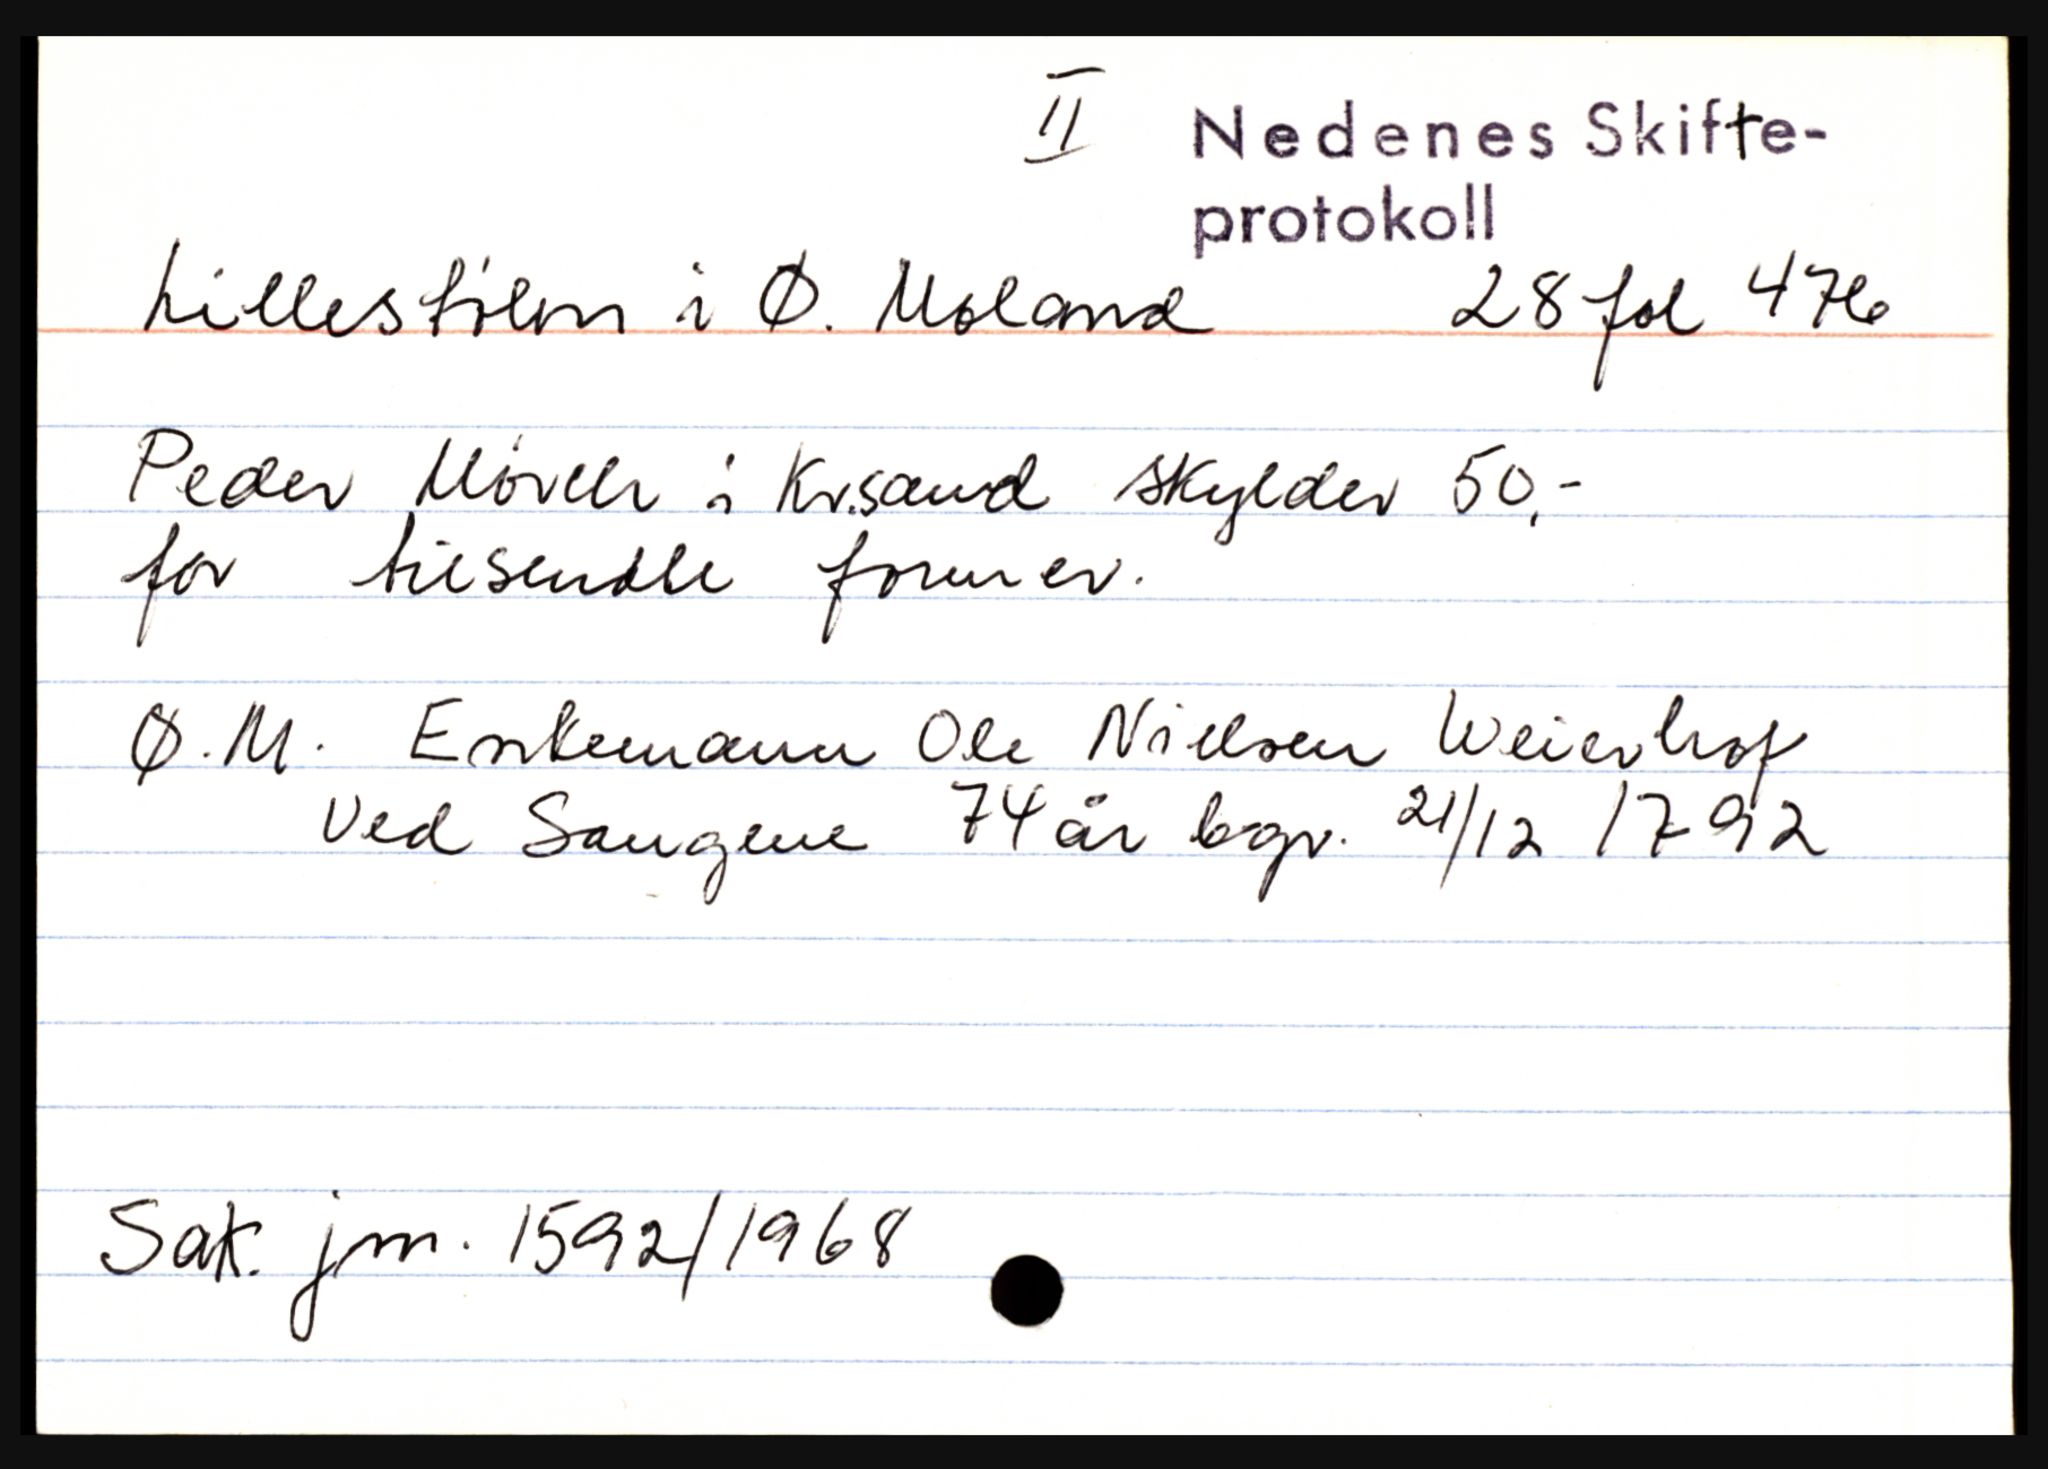 II Nedenes Skifte-
protokoll
Lillestølen i Ø. Moland 28 fol 476
Peder Mørch i Kr.sand skylder 50,-
for tilsendte former.
Ø.M. Enkemann Ole Nielsen Weierhof
ved Saugene 74 år bgr. 21/12 1792
Sak. jm. 1592/1968